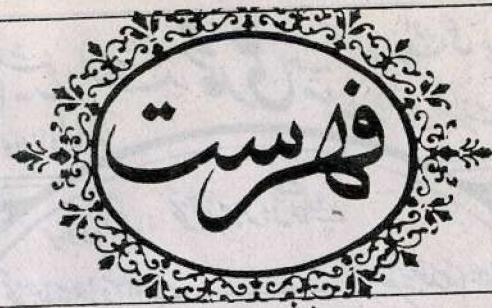 فہرست